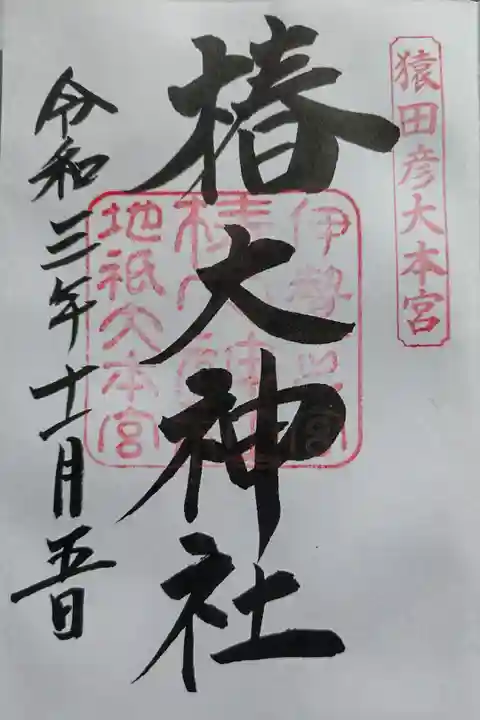 猿田彦大本宮
椿大神社
伊勢一之宮
地祇大本宮
令和三年十一月五日